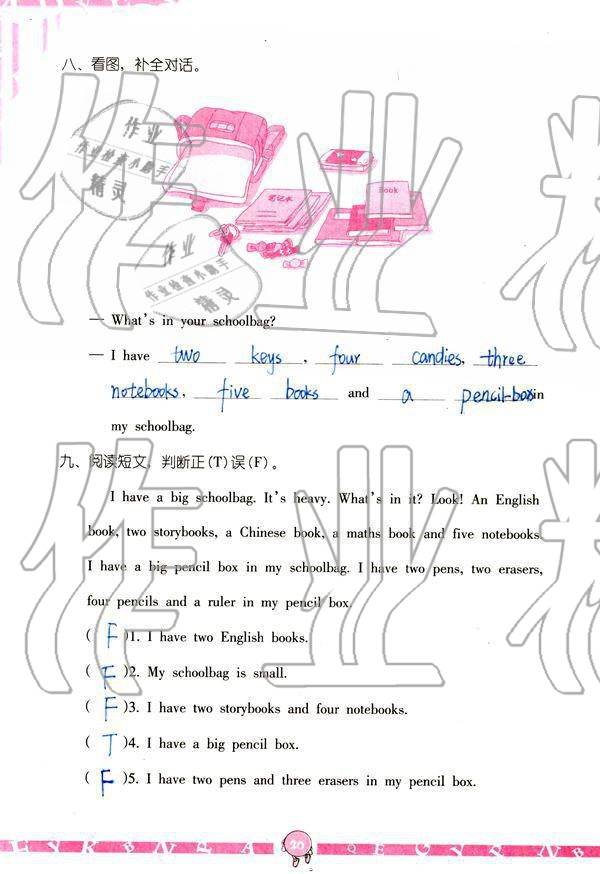 八、看图，补全对话。
笔记本
Book
— What's in your schoolbag?
— I have two keys, four candies, three
notebooks, five books and a pencil-box in
my schoolbag.
九、阅读短文，判断正(T)误(F)。
I have a big schoolbag. It's heavy. What's in it? Look! An English
book, two storybooks, a Chinese book, a maths book and five notebooks.
I have a big pencil box in my schoolbag. I have two pens, two erasers,
four pencils and a ruler in my pencil box.
( F )1. I have two English books.
( F )2. My schoolbag is small.
( F )3. I have two storybooks and four notebooks.
( T )4. I have a big pencil box.
( F )5. I have two pens and three erasers in my pencil box.
30
作业
作业检查小助手
精灵
作业
作业检查小助手
精灵
作业
作业